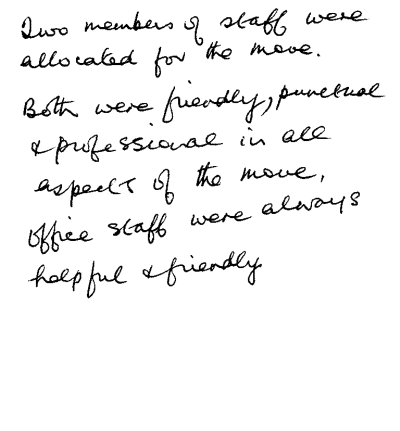 Two members of staff were
allocated for the move.
Both were friendly, punctual
& professional in all
aspects of the move,
office staff were always
helpful & friendly